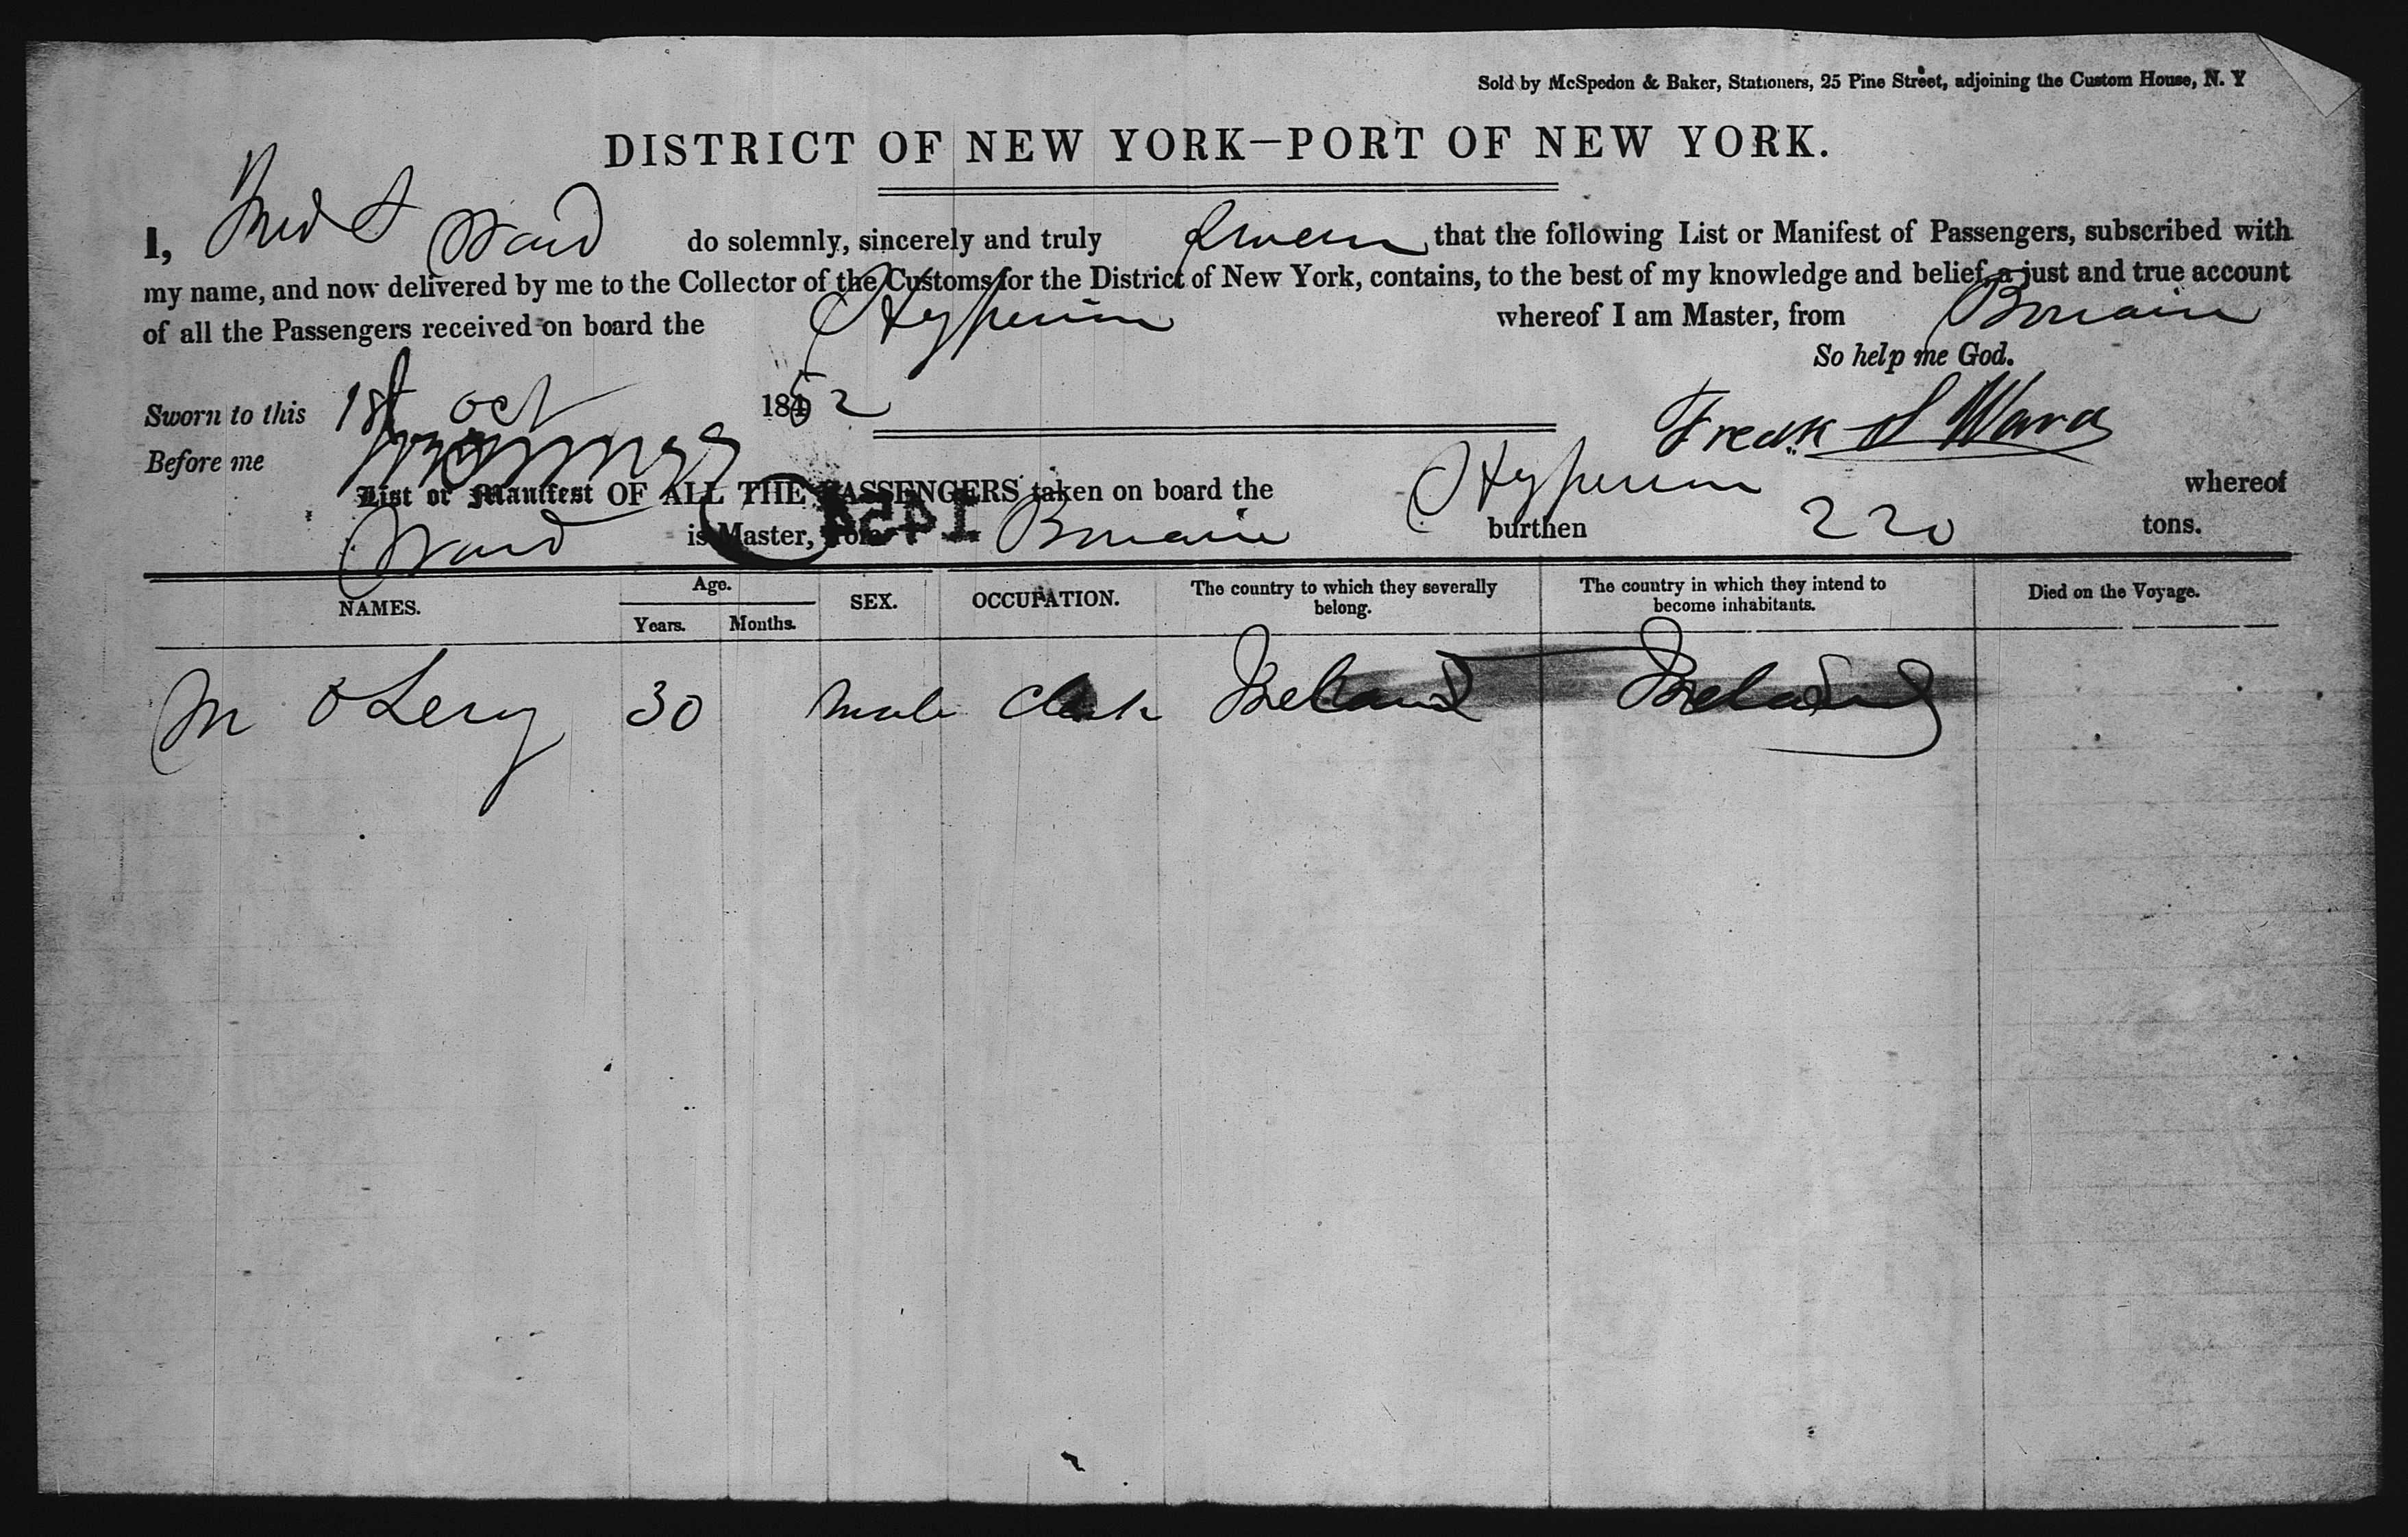 Sold by McSpedon & Baker, Stationers, 25 Pine Street, adjoining the Custom House, N. Y
DISTRICT OF NEW YORK—PORT OF NEW YORK.
I, Fred S Ward do solemnly, sincerely and truly swear that the following List or Manifest of Passengers, subscribed with
my name, and now delivered by me to the Collector of the Customs for the District of New York, contains, to the best of my knowledge and belief, a just and true account
of all the Passengers received on board the Hyperion whereof I am Master, from Bonaire
So help me God.
Sworn to this 1st Oct 1852
Fredk S Ward
Before me
List or Manifest OF ALL THE PASSENGERS taken on board the Hyperion whereof
Ward is Master, from Bonaire burthen 220 tons.
1454
NAMES. Age. Years. Months. SEX. OCCUPATION. The country to which they severally belong. The country in which they intend to become inhabitants. Died on the Voyage.
M O Lery 30 Male Clerk Ireland Ireland